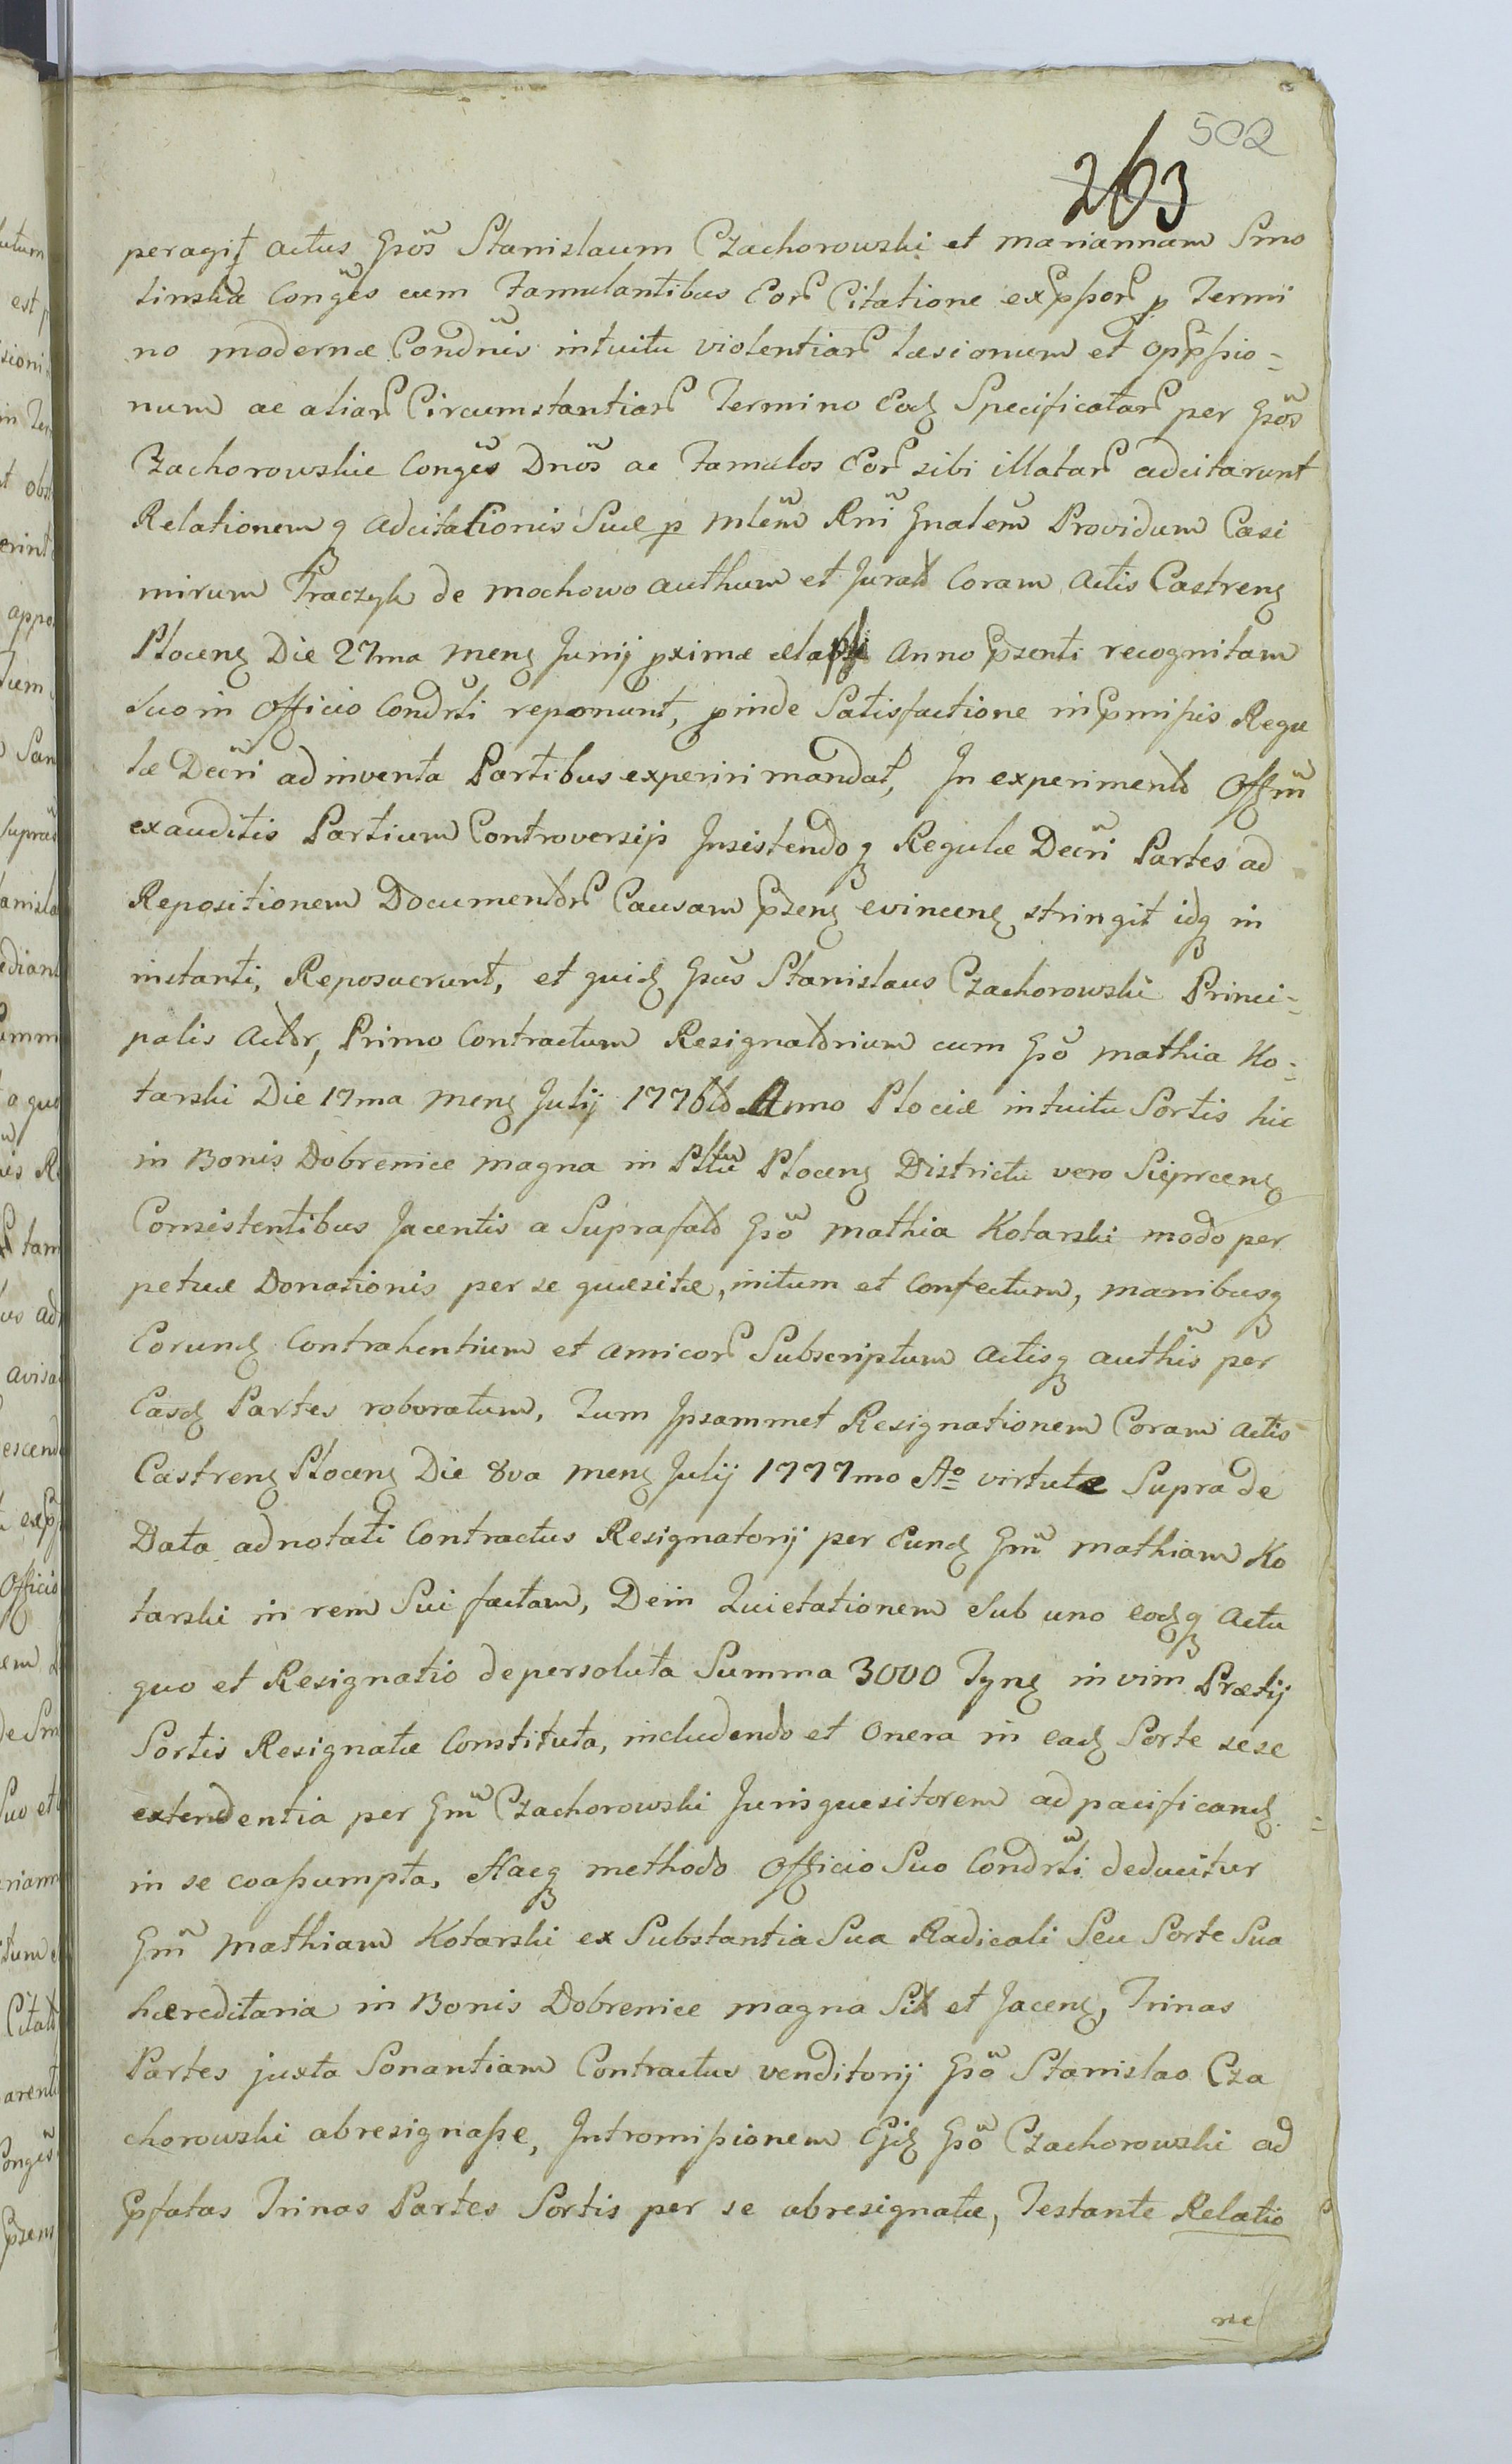 502
263
peragit actus Gsos Stanislaum Czachorowski et Mariannam Smo
linska Conges cum Famulantibus Eor Citatione expssor p Termi
no modernæ Condnis intuitu violentiar læsionum et oppssio=
num ac aliar Circumstantiar Termino Eodq Specificatar per Gsos
Czachorowskie Conges Dnos ac Famulos Eor sibi illatar adcitarunt
Relationemq adcitationis Suæ p Mlem Rni Gnalem Providum Casi
mirum Traczyk de Mochowo authum et Jurato Coram Actis Castrenq
Plocenq Die 27ma Menq Junij pximæ elapsi Anno Pzenti recognitam
Suo in Officio Condrti reponunt, pinde Satisfactione in Pmissis Regu
læ Decri adinventa Partibus experiri mandat, In experimento Offm
exauditis Partium Controversijs Insistendoq Regulæ Decri Partes ad
Repositionem Documentor Causam Pzenq evincenq stringit idq in
instanti, Reposuerunt, et quidq Gsus Stanislaus Czachorowski Princi=
palis Actor, Primo Contractum Resignatorium cum Gso Mathia Ko=
tarski Die 17ma Menq Julij 1776to Anno Plociæ intuitu Sortis hic
in Bonis Dobrenice magna in Pltu Plocenq Districtu vero Sieprcenq
Consistentibus Jacentis a Suprafato Gso Mathia Kotarski modo per
petuæ Donationis per se quæsitæ, initum et Confectum, manibusq
Eorundq Contrahentium et Amicor Subscriptum Actisq authis per
Easdq Partes roboratum, Tum Ipsammet Resignationem Coram Actis
Castrenq Plocenq Die 8va Menq Julij 1777mo Ao virtute Supra de
Data adnotati Contractus Resignatorij per Eundq Gm Mathiam Ko
tarski in rem Sui factam, Dein Quietationem Sub uno eodqq Actu
quo et Resignatio depersoluta Summa 3000 Tynq in vim Prætij
Sortis Resignatæ Constituta, includendo et Onera in eadq Sorte sese
extendentia per Gm Czachorowski Jurisquesitorem ad pacificandq
in se coassumpta, Hacq methodo Officio Suo Condrti deducitur
Gm Mathiam Kotarski ex Substantia Sua Radicali Seu Sorte Sua
hæreditaria in Bonis Dobrenice magna Sit et Jacenq, Trinas
Partes juxta Sonantiam Contractus venditorij Gso Stanislao Cza
chorowski abresignasse, Intromissionem Ejdq Gso Czachorowski ad
Pfatas Trinas Partes Sortis per se abresignatæ, Testante Relatio
ne